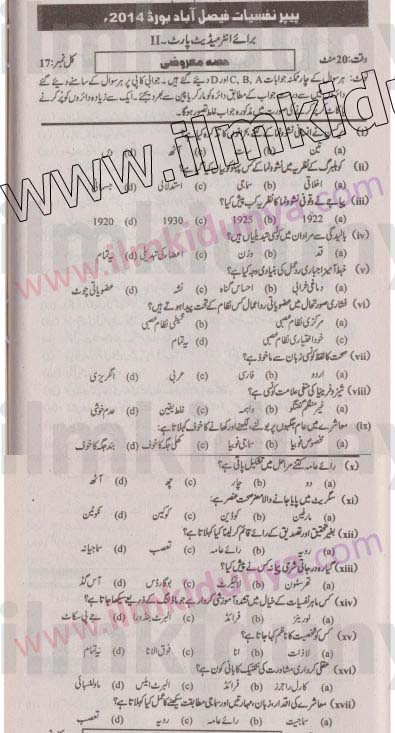 پیپر نفسیات فیصل آباد بورڈ 2014ء
برائے انٹرمیڈیٹ پارٹ-II
وقت: 20 منٹ حصہ معروضی کل نمبر: 17
نوٹ: ہر سوال کے چار ممکنہ جوابات A، B، C اور D دیئے گئے ہیں۔ جوابی کاپی پر ہر سوال کے سامنے دیئے گئے
دائروں میں سے درست جواب کے مطابق دائرہ کو مارکر یا پین سے بھر دیجئے۔ ایک سے زیادہ دائروں کو پُر کرنے
کی صورت میں مذکورہ جواب غلط تصور ہوگا۔
(i)
(a) تین (b) (c) آٹھ (d)
(ii) کوہلبرگ کے نظریہ میں نشوونما کے کس پہلو
(a) اخلاقی (b) سماجی (c) استدلالی (d) جسمانی
(iii) پیاجے نے وقوفی نشوونما کا نظریہ کب پیش کیا؟
(a) 1922 (b) 1925 (c) 1930 (d) 1920
(iv) بالیدگی سے مراد ان میں کونسی تبدیلیاں ہیں؟
(a) قد (b) وزن (c) اعضاء کی تبدیلی (d) یہ تمام
(v) خبط آمیز اجباری ردعمل کی بنیادی وجہ کیا ہے؟
(a) دماغی خرابی (b) احساس گناہ (c) نشہ (d) عضویاتی چوٹ
(vi) فشاری صورتحال میں عضویاتی ردِ اعمال کس نظام کے تحت پیدا ہوتے ہیں؟
(a) مرکزی نظام عصبی (b) محیطی نظام عصبی
(c) خود اختیاری نظام عصبی (d) یہ تمام
(vii) صحت کا لفظ کونسی زبان سے ماخوذ ہے؟
(a) اردو (b) فارسی (c) عربی (d) انگریزی
(viii) شیزوفرینیا کی منفی علامت کونسی ہے؟
(a) غیر منظم گفتگو (b) واہمہ (c) غلط یقین (d) عدم خوشی
(ix) معاشرے میں عام جگہوں پر بولنے، لکھنے اور کھانے کا خوف کہلاتا ہے؟
(a) مخصوص فوبیا (b) سماجی فوبیا (c) کھلی جگہ کا خوف (d) بند جگہ کا خوف
(x) رائے عامہ کتنے مراحل میں تشکیل پاتی ہے؟
(a) دو (b) چار (c) چھ (d) آٹھ
(xi) سگریٹ میں پایا جانے والا مضر صحت عنصر ہے؟
(a) مارفین (b) کوڈین (c) کوکین (d) نکوٹین
(xii) بغیر تحقیق اور تصدیق کے رائے قائم کر لینا کیا کہلاتا ہے؟
(a) رویہ (b) رائے عامہ (c) تعصب (d) سماجیانہ
(xiii) گیارہ درجاتی شرحی پیمانہ کس نے پیش کیا؟
(a) تھرسٹون (b) لائیکرٹ (c) بوگارڈس (d) آس گڈ
(xiv) کس ماہر نفسیات کے خیال میں تشدد آموزشی کردار ہے، جو ماڈلنگ کے ذریعے سیکھا جاتا ہے؟
(a) لورینز (b) فرائڈ (c) البرٹ بنڈورا (d) جے پی سکاٹ
(xv) کس کو شخصیت کا ناظم کہا جاتا ہے؟
(a) لاذات (b) انا (c) فوق الانا (d) یہ تمام
(xvi) عقلی کرداری مشاورت کی تکنیک کا بانی کون ہے؟
(a) کارل راجرز (b) فرائڈ (c) البرٹ ایلس (d) ماولشپائی
(xvii) معاشرے کی اقدار، زبان، مہارتیں اور سماجی مطابقت سیکھنے کا عمل کیا کہلاتا ہے؟
(a) سماجیت (b) رائے عامہ (c) رویہ (d) تعصب
www.ilmkidunya.com